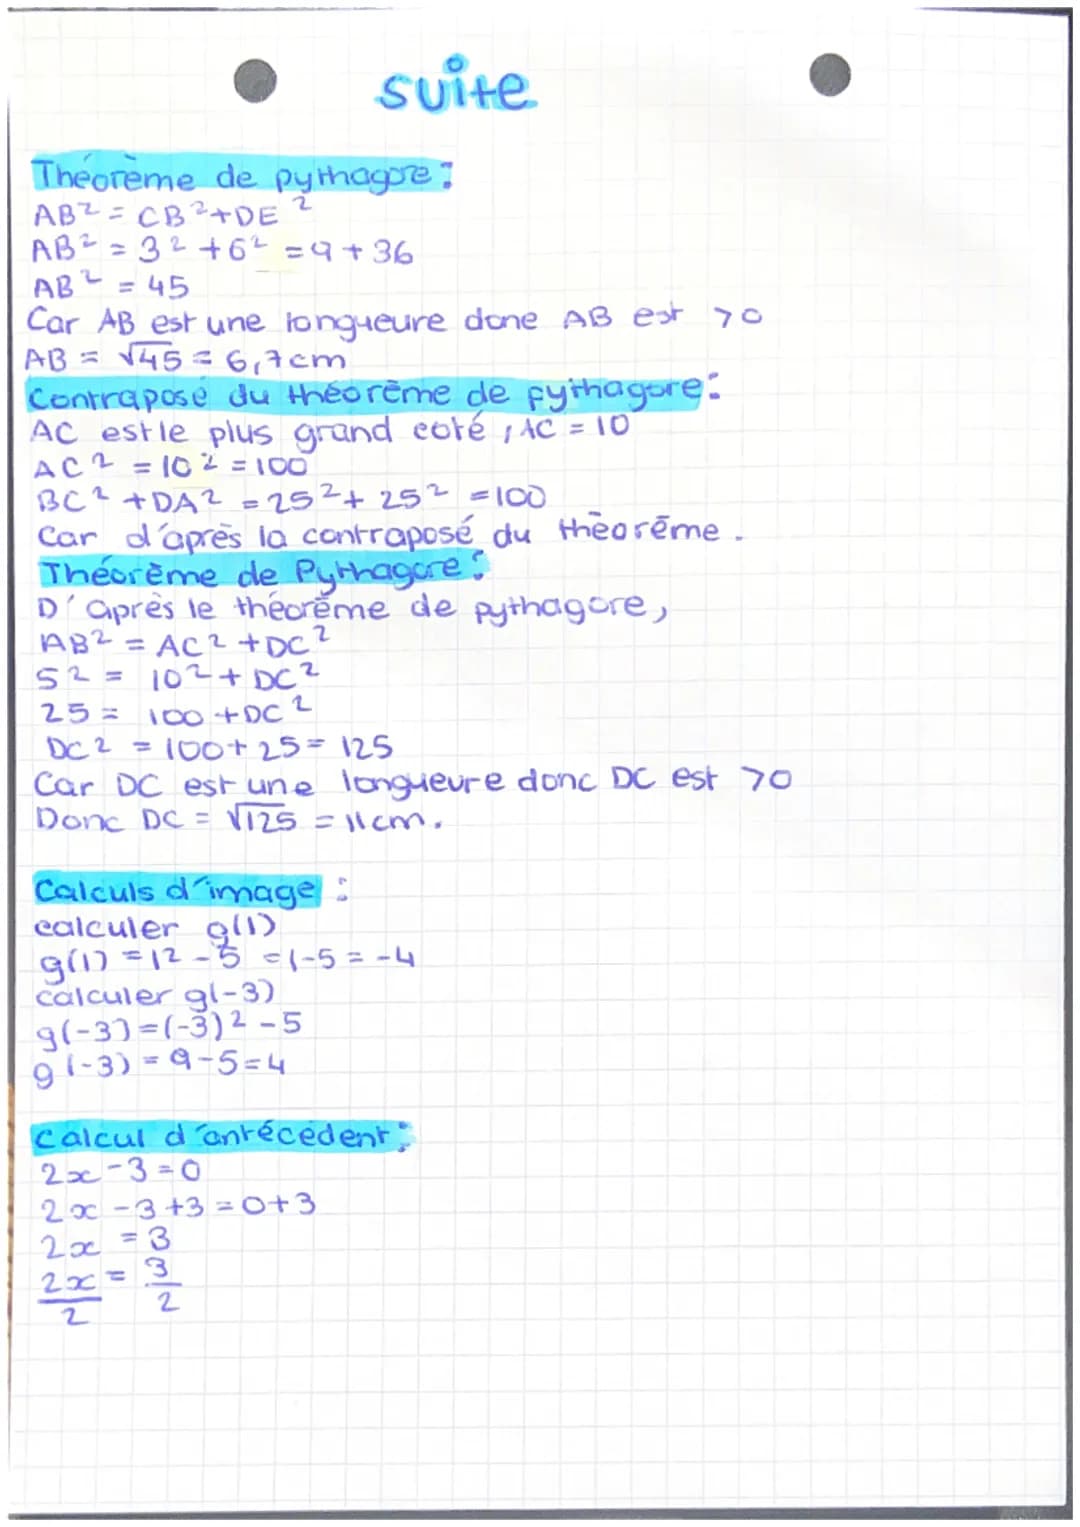 suite
Théorème de pythagore :
AB² = CB²+DE²
AB² = 3² +6² = 9 + 36
AB² = 45
Car AB est une longueure donc AB est >0
AB = √45 = 6,7cm
Contraposé du théorème de pythagore :
AC est le plus grand coté, AC = 10
AC² = 10² = 100
BC² + DA² = 25² + 25² = 100
Car d'après la contraposé du théorème.
Théorème de Pythagore :
D'après le théorème de pythagore,
AB² = AC² + DC²
5² = 10² + DC²
25 = 100 + DC²
DC² = 100 + 25 = 125
Car DC est une longueure donc DC est >0
Donc DC = √125 = 11cm.
Calculs d'image :
calculer g(1)
g(1) = 1² - 5 = 1-5 = -4
calculer g(-3)
g(-3) = (-3)² - 5
g(-3) = 9-5=4
Calcul d'antécédent :
2x-3=0
2x-3+3=0+3
2x = 3
2x/2 = 3/2